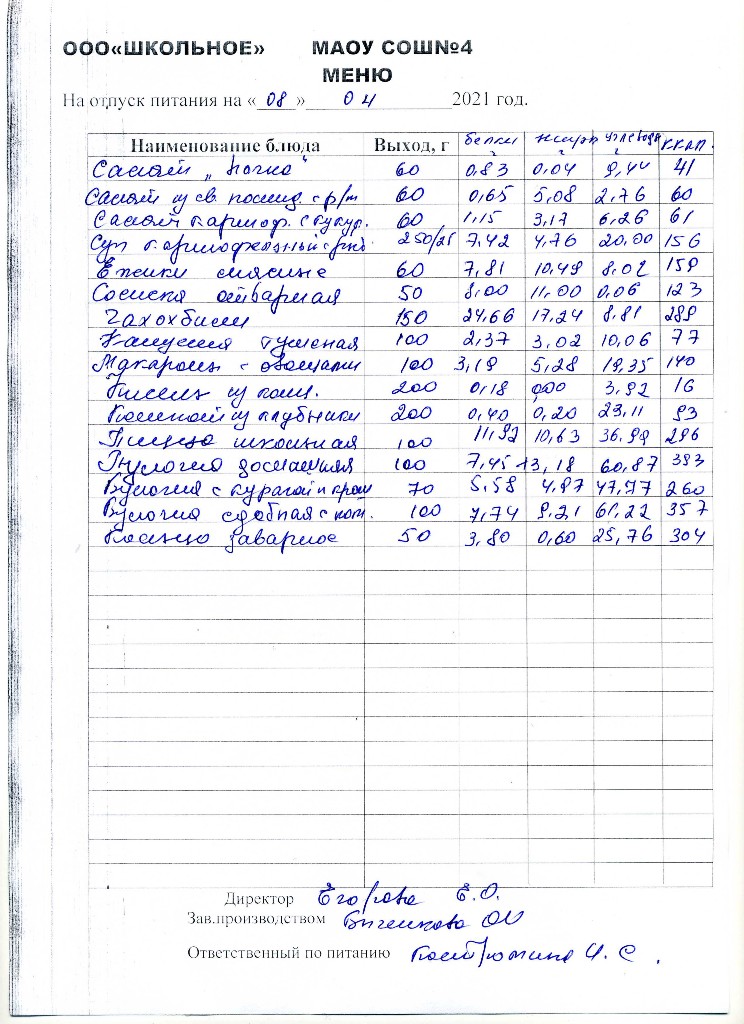 ООО«ШКОЛЬНОЕ» МАОУ СОШ№4
МЕНЮ
На отпуск питания на «08» 04 2021 год.
Наименование блюда Выход, г белки г жиры г углеводы г ккал.
Салат „ 60 0,83 0,04 9,44 41
Салат из св. помид. с р/м 60 0,65 5,08 2,76 60
Салат картоф. с кукур. 60 1,15 3,17 6,26 61
Суп картофельный с 250/25 7,42 4,76 20,00 156
Ежики мясные 60 7,81 10,49 8,02 159
Сосиска отварная 50 8,00 11,00 0,06 123
Чахохбили 150 24,66 17,24 8,81 288
Капуста тушеная 100 2,37 3,02 10,06 77
Макароны с овощами 100 3,19 5,28 19,35 140
Кисель из 200 0,18 0,00 3,92 16
Компот из клубники 200 0,40 0,20 23,11 93
Пицца школьная 100 11,92 10,63 36,99 296
Булочка домашняя 100 7,45 13,18 60,87 393
Булочка с курагой и 70 5,58 4,97 47,77 260
Булочка сдобная с 100 7,74 9,21 61,22 357
Кольцо заварное 50 3,80 0,60 25,76 304
Директор Егорова Е.О.
Зав.производством
Ответственный по питанию Кострюмина И. С.